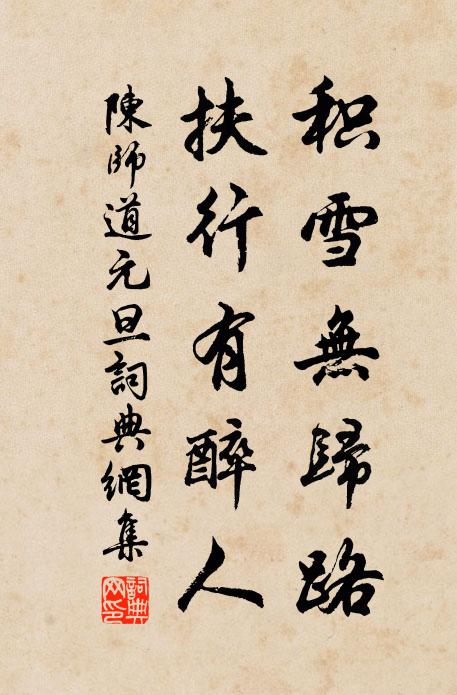 积雪無歸路
扶行有醉人
陳師道元旦詞典網集
詞典網印